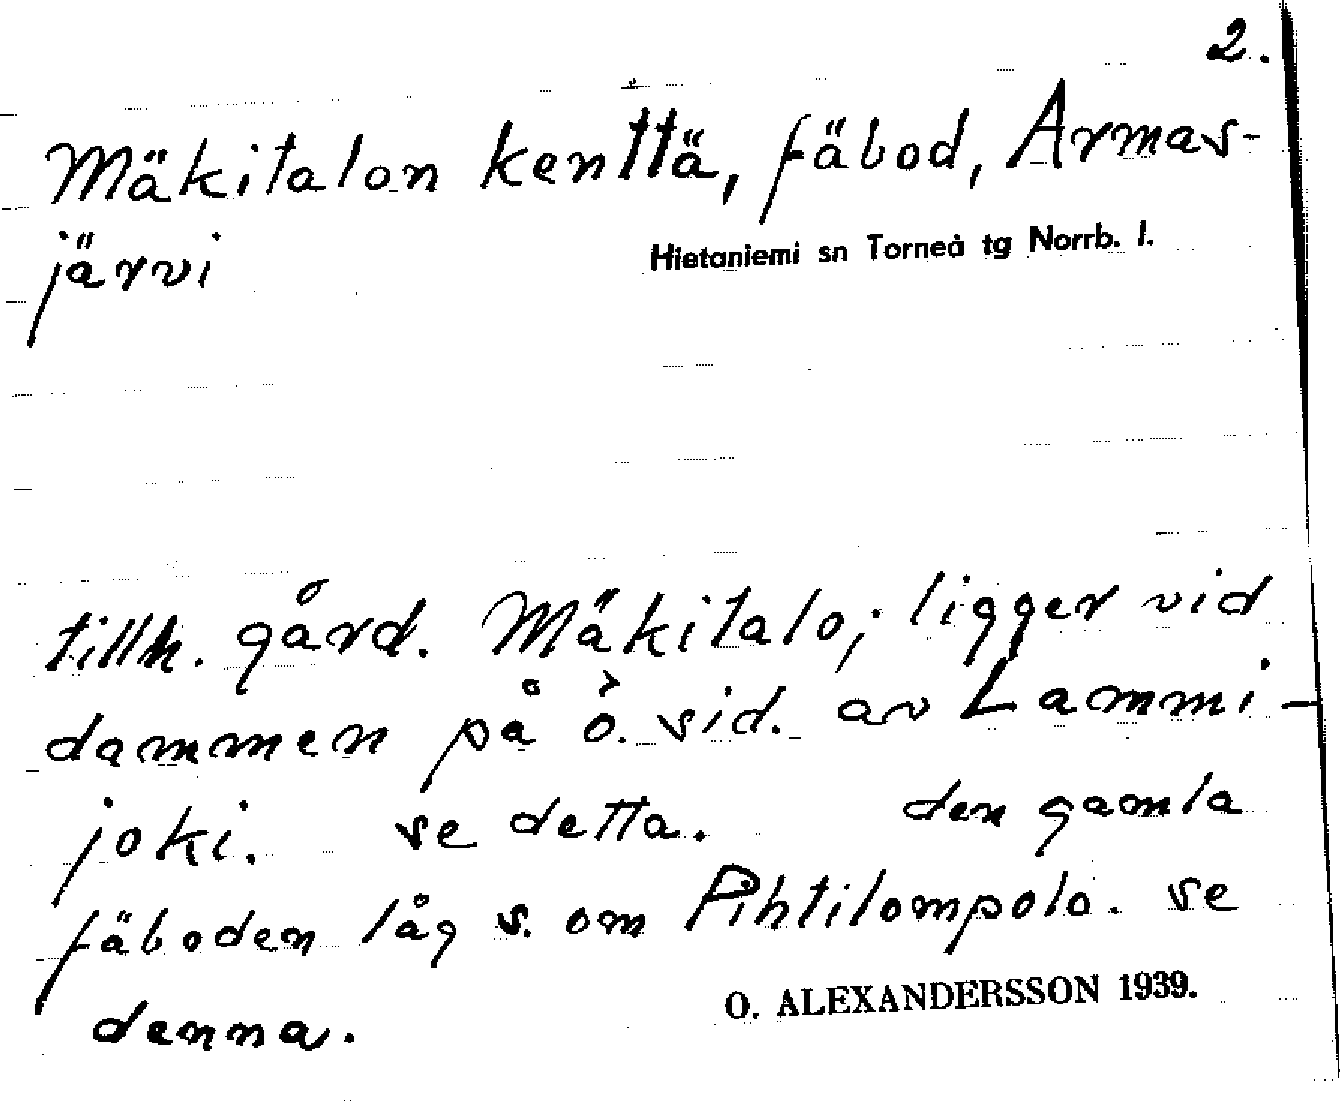 2.
Mäkitalon kenttä, fäbod, Armas-
järvi
Hietaniemi sn Torneå tg Norrb. l.
tillh. gård. Mäkitalo; ligger vid
dammen på ö. sid. av Lammi-
joki. se detta. den gamla
fäboden låg s. om Pihtilompolo. se
denna.
O. ALEXANDERSSON 1939.